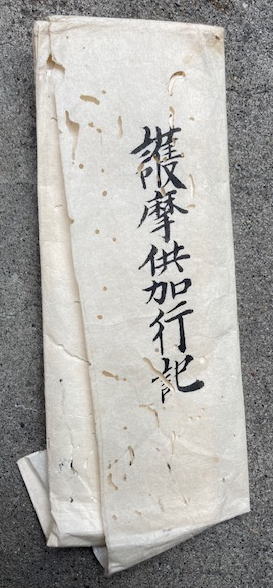 護摩供加行記